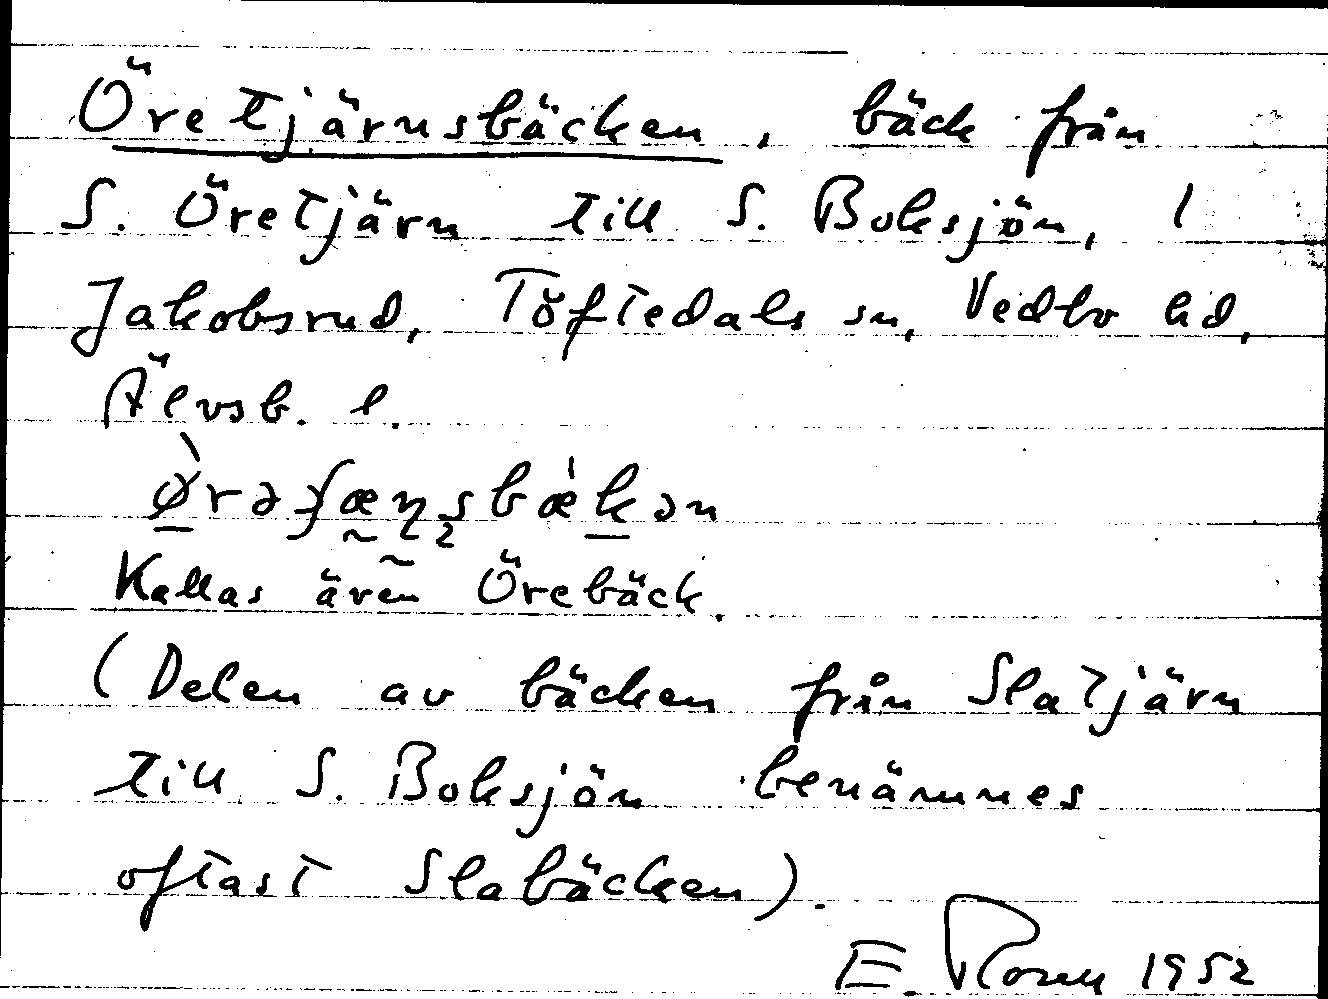 Öretjärnsbäcken, bäck från
S. Öretjärn till S. Boksjön, i
Jakobsrud, Töftedals sn, Vedbo hd,
Älvsb. l.
Kallas även Örebäck.
(Delen av bäcken från Slatjärn
till S. Boksjön benämnes
oftast Slabäcken).
E. 1952